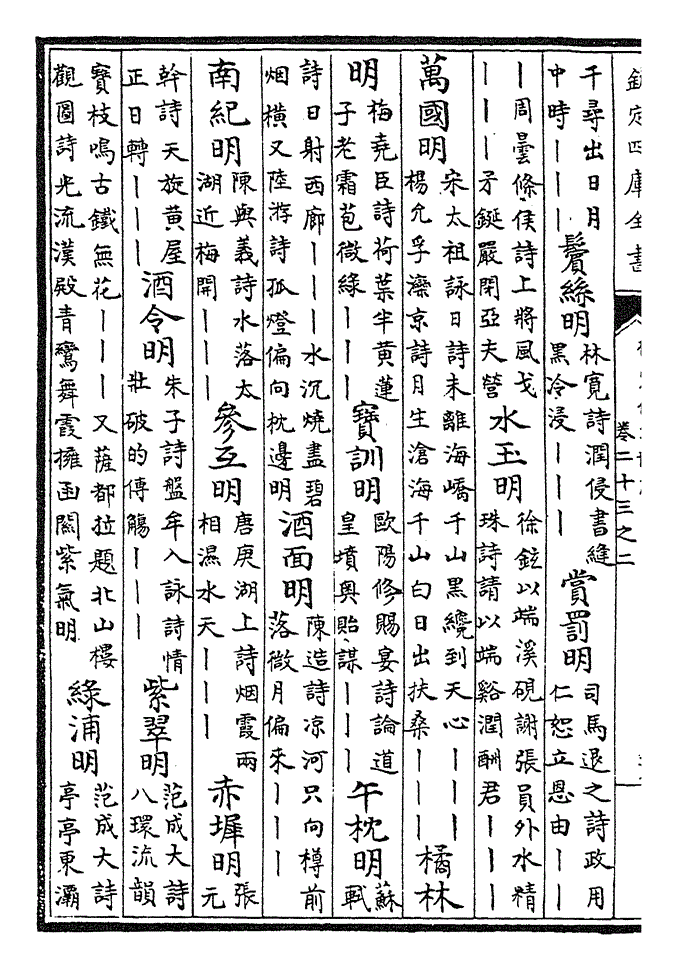 欽定四庫全書
卷二十三之二
千尋出日月
中時｜｜｜
鬢絲明
林寬詩潤侵書縫
黑冷浸｜｜｜
賞罰明
司馬退之詩政用
仁恕立恩由｜｜
｜周曇條侯詩上將風戈
｜｜｜矛鋋嚴閉亞夫營
水玉明
徐鉉以端溪硯謝張員外水精
珠詩請以端谿潤酬君｜｜｜
萬國明
宋太祖詠日詩未離海嶠千山黑纔到天心｜｜｜
楊允孚灤京詩月生滄海千山白日出扶桑｜｜｜
橘林
明
梅堯臣詩荷葉半黃蓮
子老霜苞微綠｜｜｜
寶訓明
歐陽修賜宴詩論道
皇墳奧貽謀｜｜｜
午枕明
蘇
軾
詩日射西廊｜｜｜水沉燒盡碧
烟橫又陸游詩孤燈偏向枕邊明
酒面明
陳造詩凉河只向樽前
落微月偏來｜｜｜
南紀明
陳與義詩水落太
湖近梅開｜｜｜
參互明
唐庚湖上詩烟霞兩
相濕水天｜｜｜
赤墀明
張
元
幹詩天旋黃屋
正日轉｜｜｜
酒令明
朱子詩盤牟入詠詩情
壯破的傳觴｜｜｜
紫翠明
范成大詩
八環流韻
寶枝鳴古鐵無花｜｜｜又薩都拉題北山樓
觀圖詩光流漢殿青鸞舞霞擁函關紫氣明
綠浦明
范成大詩
亭亭東灞